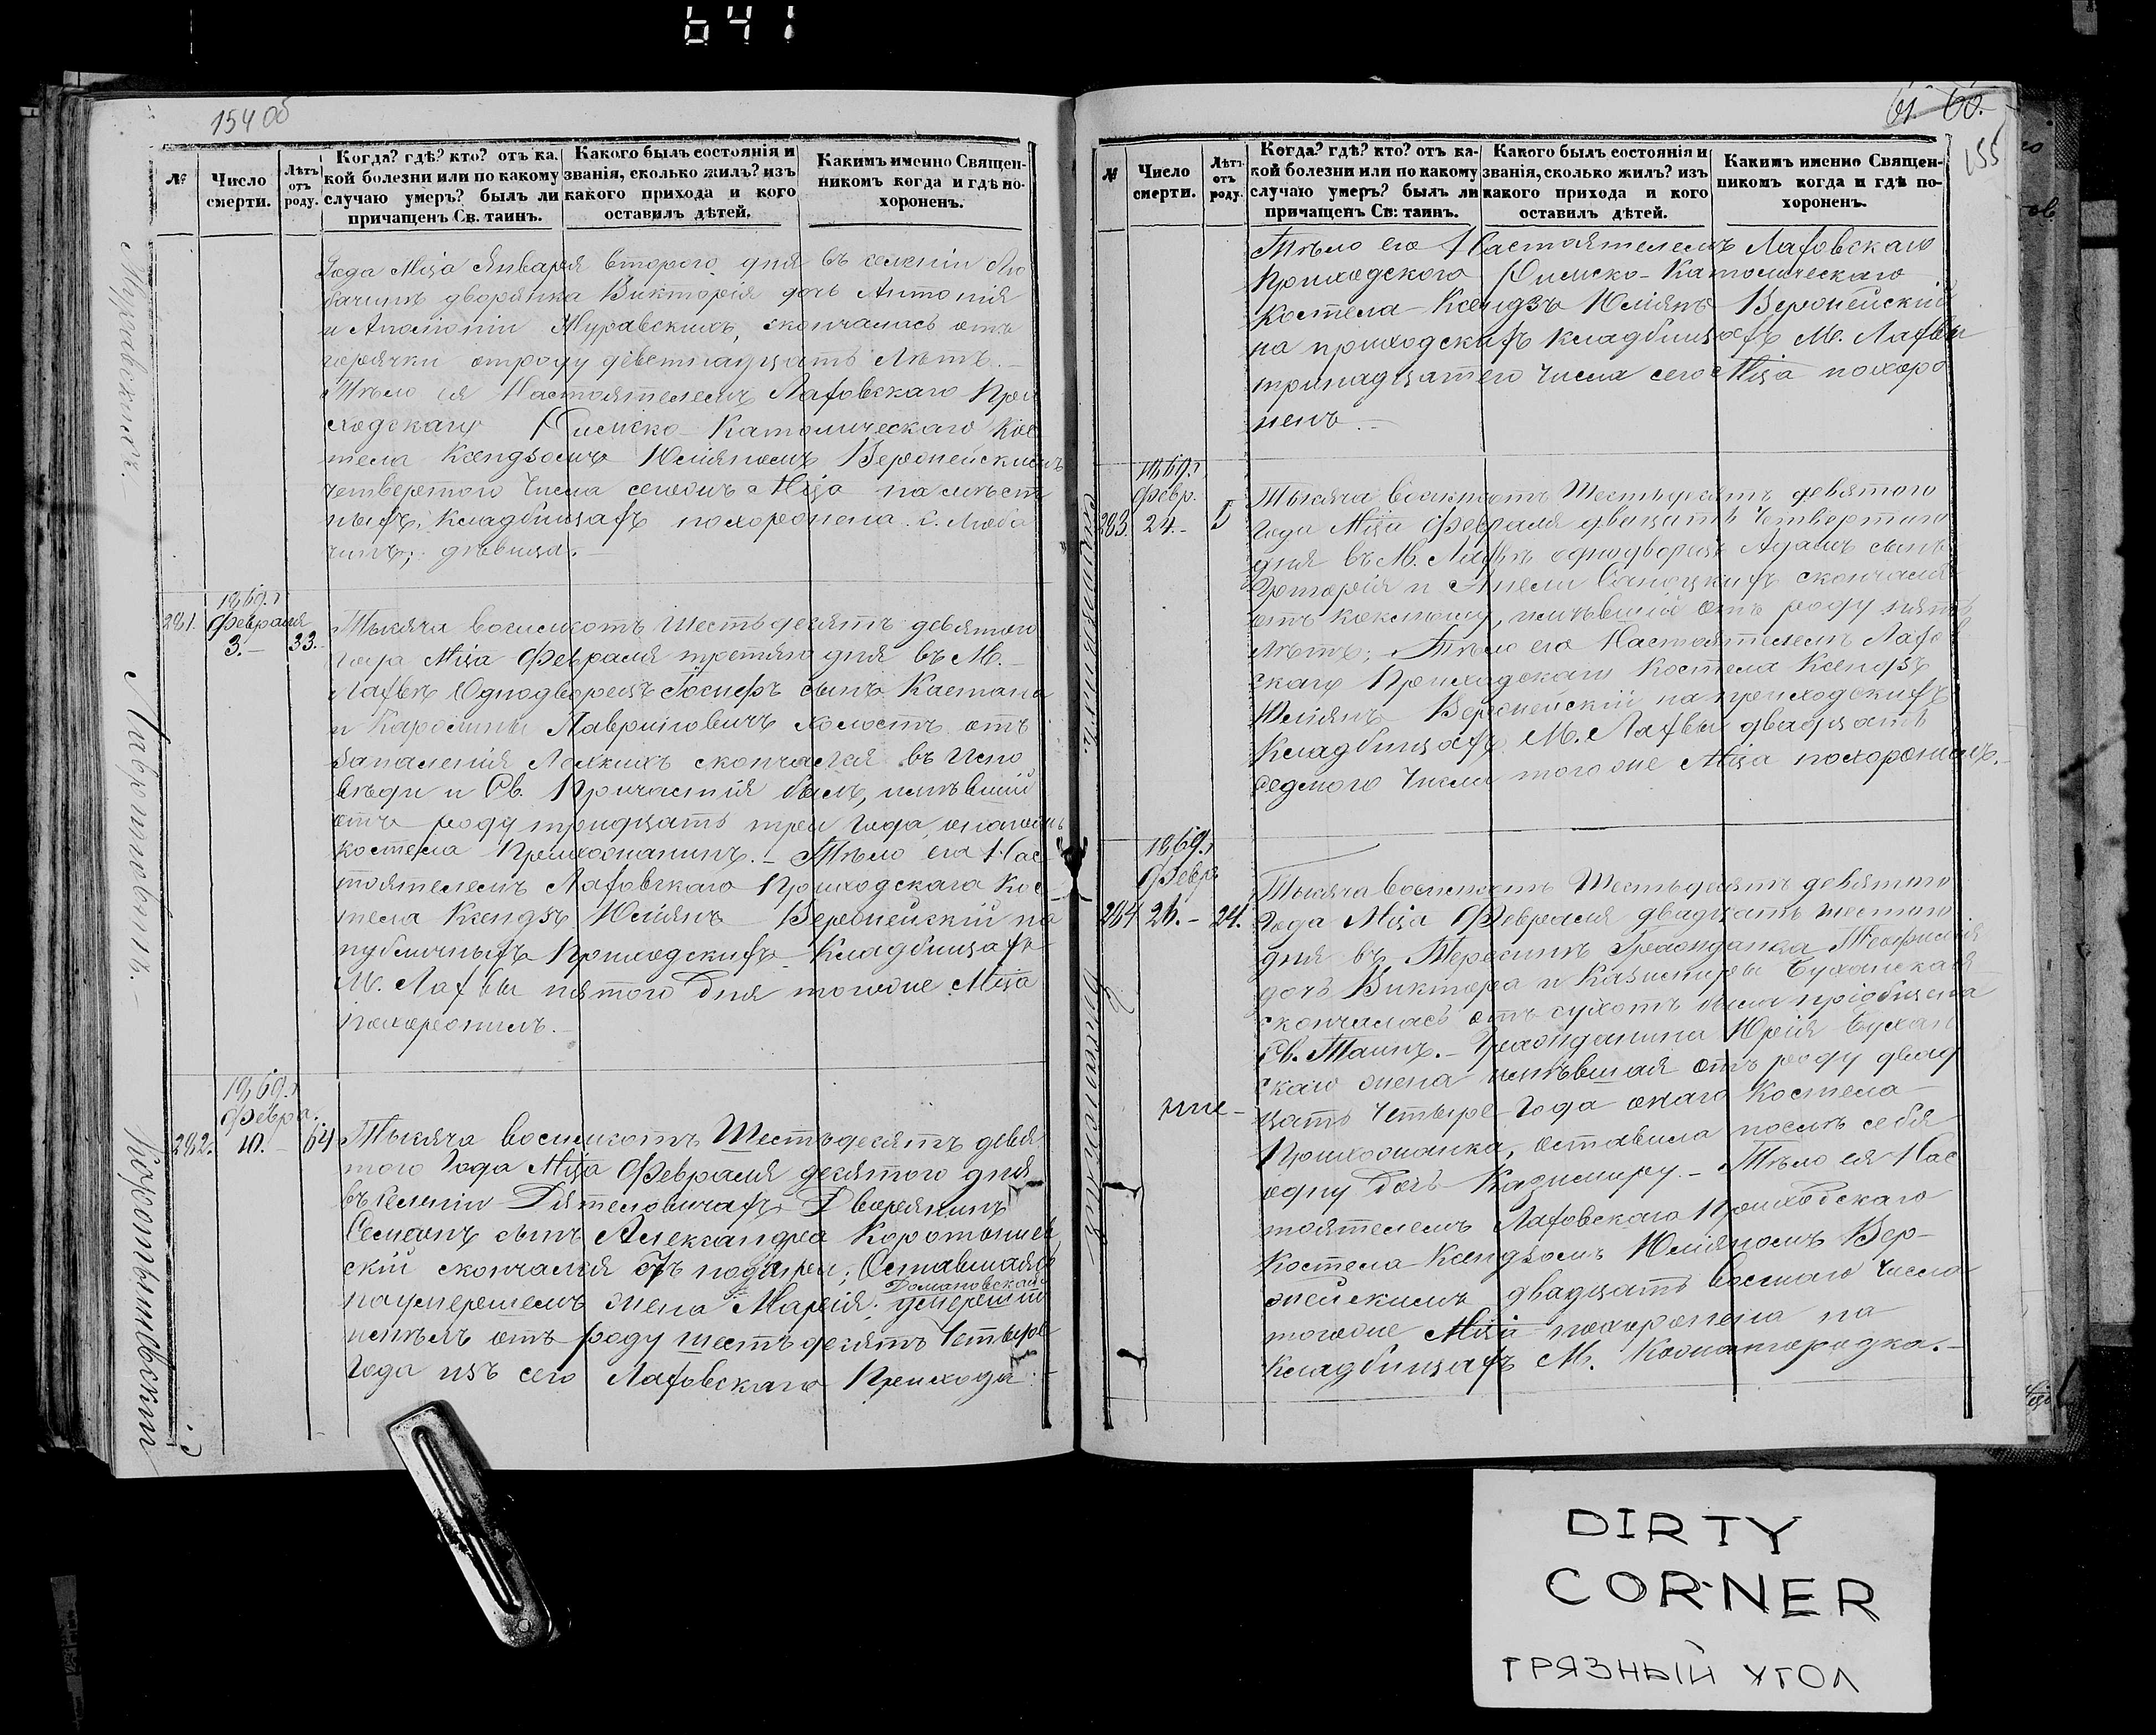 641
154 об
№
Число смерти.
Лѣтъ отъ роду.
Когда? гдѣ? кто? отъ ка-
кой болезни или по какому
случаю умеръ? былъ ли
причащенъ Св. таин.
Какого былъ состоянія и
званія, сколько жилъ? изъ
какого прихода и кого
оставилъ дѣтей.
Какимъ именно Священ-
никомъ когда и гдѣ по-
хороненъ.
Журавскихъ.
Года Мца Января второго дня въ селеніи Лю
бачинъ дворянка Викторія дочь Антонія
и Аполіоніи Журавскихъ, скончалась отъ
горячки отроду девстнадцать Лѣтъ.
Тѣло ея Настоятелемъ Лаховскаго При
ходскаго Римско-Католическаго Кос
тела Ксендзомъ Юліяномъ Верожейскимъ
четвертого Числа сегожъ Мца на мѣст
ныхъ Кладбищахъ похоронена С. Люба
чинъ; дѣвица.
Лавриновичъ.
281.
1869.г
Февраля
3.-
33.
Тысяча восемсотъ шестьдесятъ девятого
года Мца Февраля третяго дня въ М.
Лахвѣ Однодворецъ Іосифъ сынъ Каетана
и Каролины Лавриновичъ холостъ отъ
Запаленія Лолкихъ скончался въ Испо
вѣди и Св. Причастія былъ, имѣвшій
отъ роду тридцать три года онагожъ
костела Прихожанинъ.- Тѣло его Нас
тоятелемъ Лаховскаго Приходскаго Кос
тела Ксендзъ Юліянъ Верожейскій на
публичныхъ Приходскихъ Кладбищахъ
М. Лахвы пятого Дня тогоже Мца
похоронилъ.
Коротышевскій
282.
1869.г
Февра.
10.-
64
Тысяча восемсотъ Шестьдесятъ девя
того Года Мца Февраля десятого дня
въ селеніи Дятеловичахъ Дворянинъ
Семеонъ сынъ Александра Коротышев
скій скончался отъ подагри; Оставшаяся
Домановская
поумершемъ жена Марыя. умершій
имѣлъ отъ роду шестьдесятъ Четыре
Года изъ сего Лаховскаго Прихода
61. 60.
155
№
Число смерти.
Лѣтъ отъ роду.
Когда? гдѣ? кто? отъ ка-
кой болезни или по какому
случаю умеръ? былъ ли
причащенъ Св: таин.
Какого былъ состоянія и
званія, сколько жилъ? изъ
какого прихода и кого
оставилъ дѣтей.
Какимъ именно Священ-
никомъ когда и гдѣ по-
хороненъ.
Тѣло его Настоятелемъ Лаховскаго
Приходского Римско-Католическаго
Костела Ксендзъ Юліянъ Верожейскій
на приходскихъ кладбищахъ М. Лахвы
тринадцатего числа сего Мца похоро
ненъ.-
283.
1869.г
Февр.
24.-
5
Тысяча восемсотъ Шестьдесятъ девятого
Года Мца Февраля двацать четвертого
дня въ М. Лахвѣ однодворецъ Адамъ сынъ
и Анели скончался
отъ коклюшу, имѣвшій отъ роду пять
лѣтъ; Тѣло его Настоятелемъ Лахов
скаго Приходскаго Костела Ксендзъ
Юліянъ Верожейскій на приходскихъ
Кладбищахъ М. Лахвы двадцать
седмого Числа тогоже Мца похоронилъ.-
284
1869.г
Февр
26.-
24.
Тысяча восемсотъ Шестьдесятъ девятого
Года Мца Февраля двадцать шестого
дня въ Гражданка Теофилія
дочь Виктора и Казимиры
скончалась отъ сухотъ была пріобщена
Св. Таинъ.- Гражданина Юрія
скаго жена имѣвшая отъ роду двад
цать четыре Года онаго Костела
Прихожанка, оставила послѣ себя
одну дочь Казимиру.- Тѣло ея Нас
тоятелемъ Лаховского Приходскаго
Костела Ксендзомъ Юліяномъ Веро-
жейскимъ двадцать восмаго числа
тогоже Мца похоронена на
Кладбищахъ М. Кожангородка.-
DIRTY
CORNER
ГРЯЗНЫЙ УГОЛ